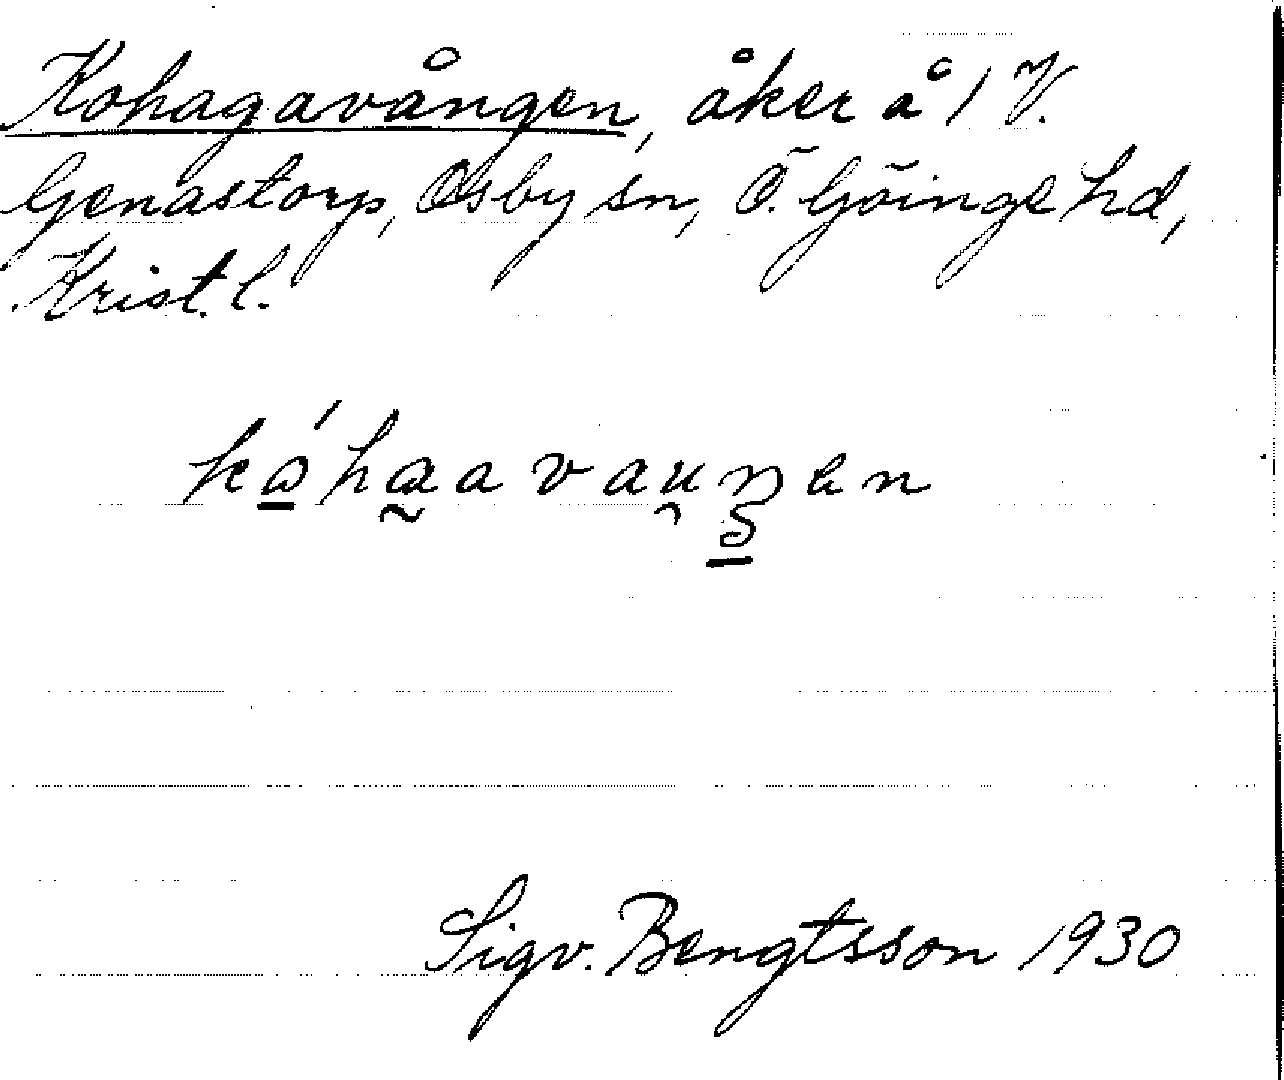 Kohagavången, åker å 1 V.
Genastorp, Osby sn, Ö. Göinge hd,
Krist. l.
Sigv. Bengtsson 1930